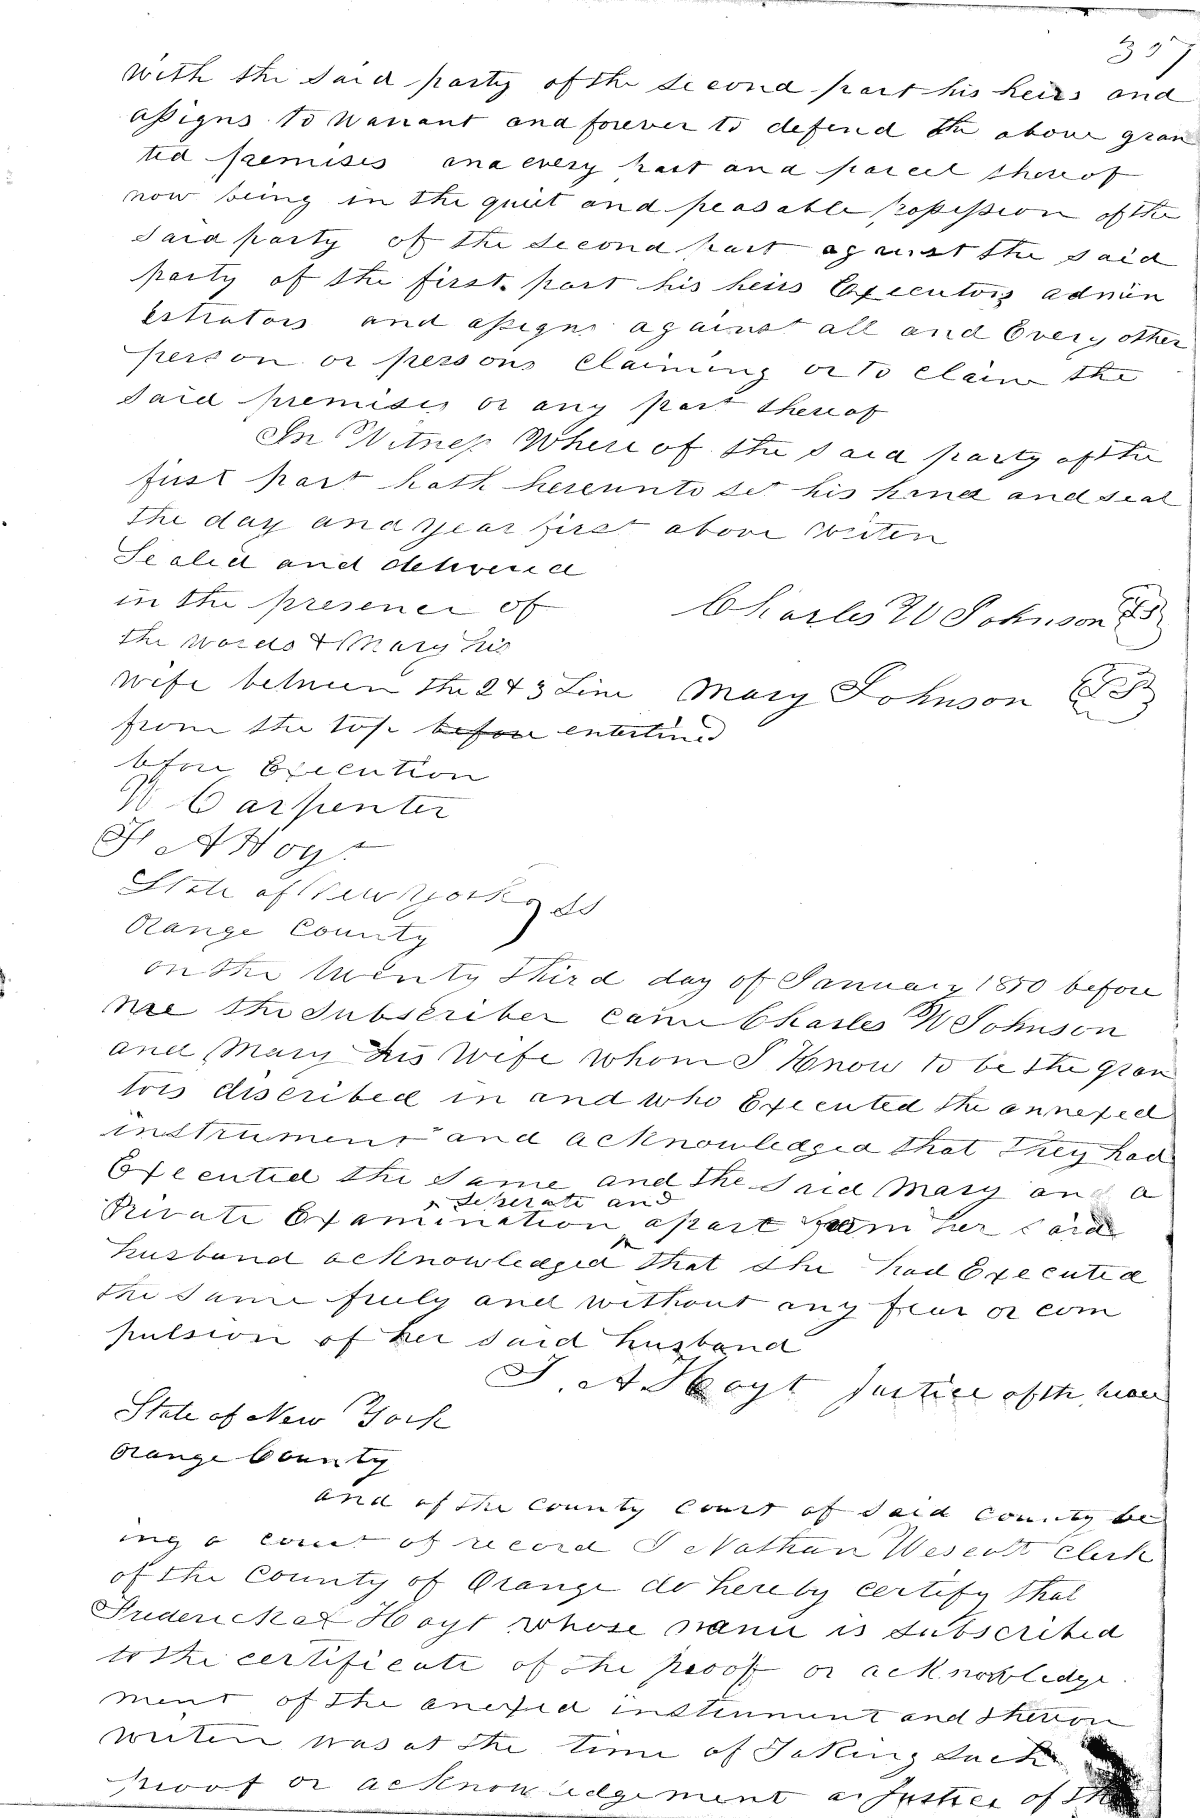 357
with the said party of the second part his heirs and
assigns to warrant and forever to defend the above gran
ted premises and every part and parcel thereof
now being in the quiet and peasable possession of the
said party of the second part against the said
party of the first part his heirs Executors admin
istrators and assigns against all and Every other
person or persons Claiming or to Claim the
said premises or any part thereof
In Witness Where of the said party of the
first part hath hereunto set his hand and seal
the day and year first above writen
Sealed and delivered
in the presence of Charles W Johnson LS
the words & Mary his
wife between the 2 & 3 Line Mary Johnson LS
from the top before enterlined
before Execution
W Carpenter
F A Hoyt
State of New York ss
Orange County
on the twenty third day of January 1850 before
me the Subscriber came Charles W Johnson
and Mary his Wife whom I Know to be the gran
tors discribed in and who Executed the annexed
instrument and acknowledged that They had
Executed the same and the said Mary on a
seperate and
Private Examination apart from her said
husband acknowledged that she had Executed
the same freely and without any fear or com
pulsion of her said husband
F. A. Hoyt Justice of the peace
State of New York
Orange County
and of the county court of said county be
ing a court of record I Nathan Wescott Clerk
of the County of Orange do hereby certify that
Frederick A Hoyt whose name is subscribed
to the certificate of the proof or acknowledge
ment of the anexed instrument and thereon
writen was at the time of Taking such
proof or acknowledgement a Justice of the